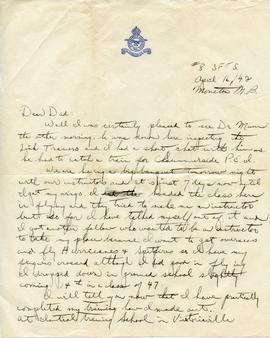 #8 SFTS
April 16/42
Moncton N.B.
Dear Dad:
Well I was certainly pleased to see Dr. Munn
the other morning. He was down here inspecting the
Link Trainers and I had a short chat with him as
he had to catch a train for Summerside P.E.I.
We are having a big banquet tomorrow night
with our instructors and it is just 7 days now till
get my wings. I headed the class here
in flying and they tried to make me an instructor
but so far I have talked myself out of it and
I got another fellow who wanted to be an instructor
to take my place because I want to get overseas
and fly Hurricanes & Spitfires so I have my
fingers crossed although I did good in flying
I dropped down in ground school slightly
coming 4th in a class of 47
I will tell you now that I have partially
completed my training how I made out.
At elementary training school in Victoriaville